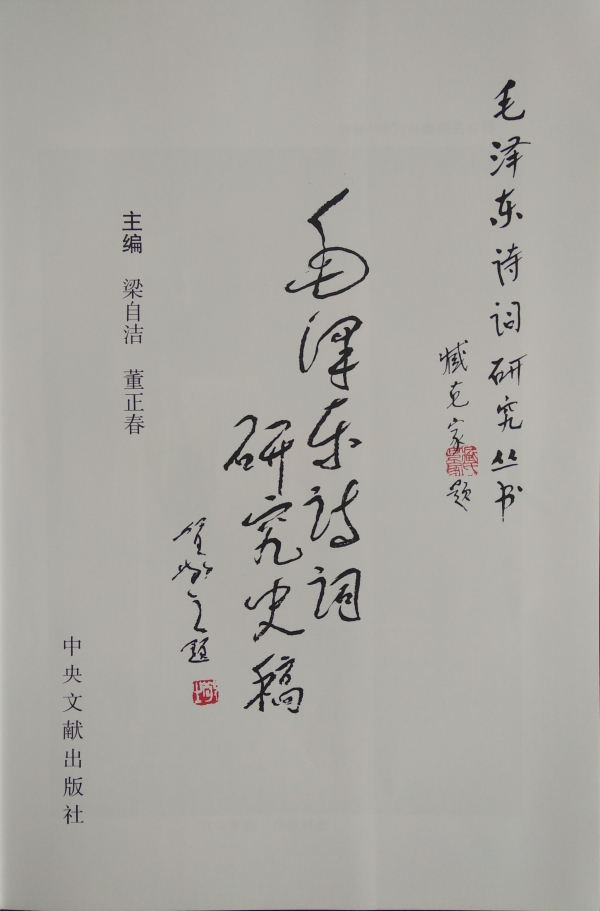 毛泽东诗词研究丛书
臧克家题
毛泽东诗词
研究史稿
敬之题
主编 梁自洁 董正春
中央文献出版社